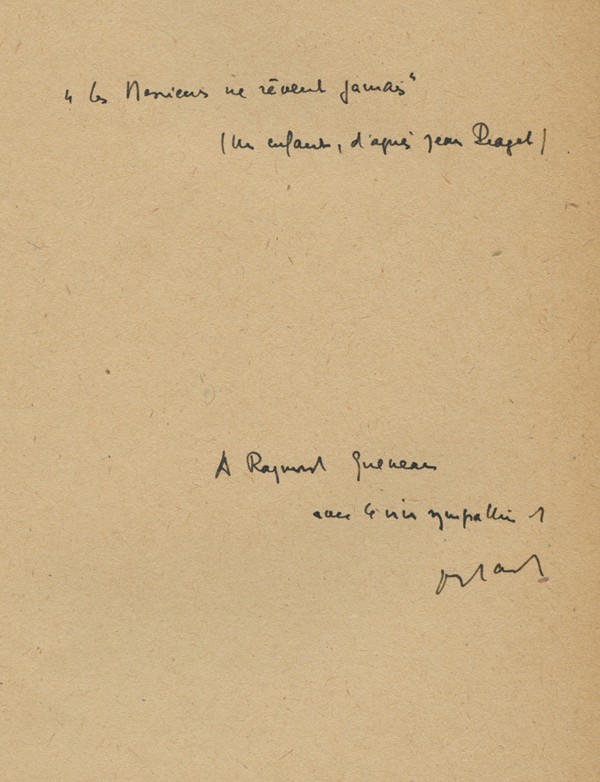 "Les Messieurs ne rêvent jamais"
(Un enfant, d'après Jean Piaget)
A Raymond Queneau
avec la vive sympathie d